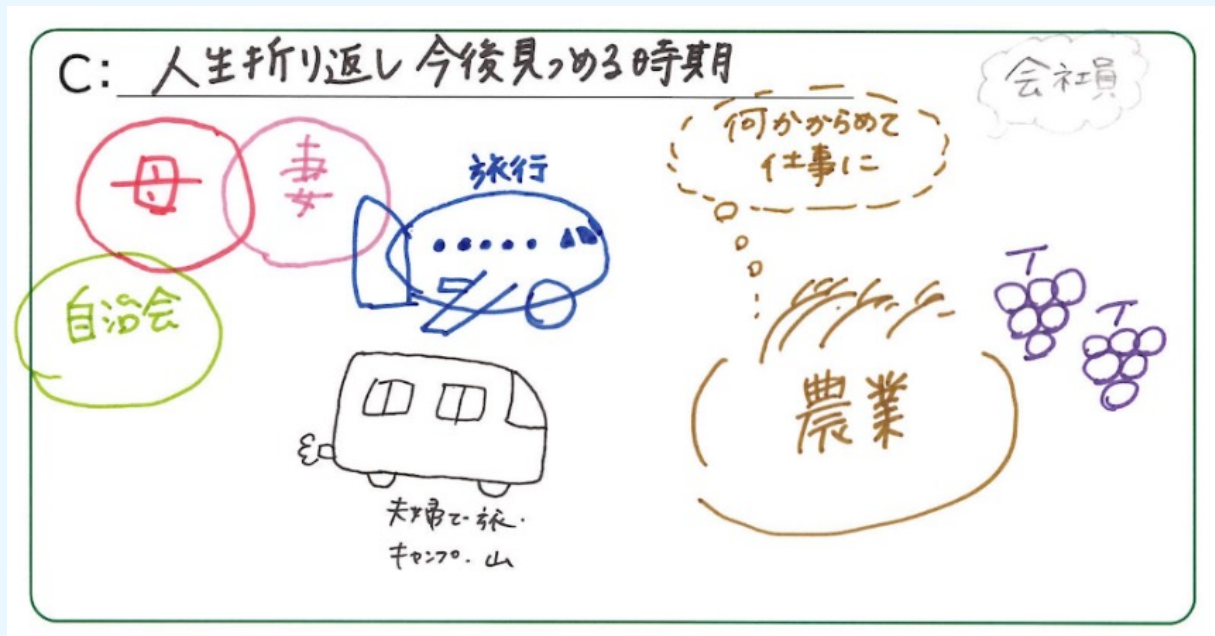 C: 人生折り返し 今後見つめる時期
会社員
母
妻
旅行
何かからめて
仕事に
自治会
農業
夫婦で旅.
キャンプ.山